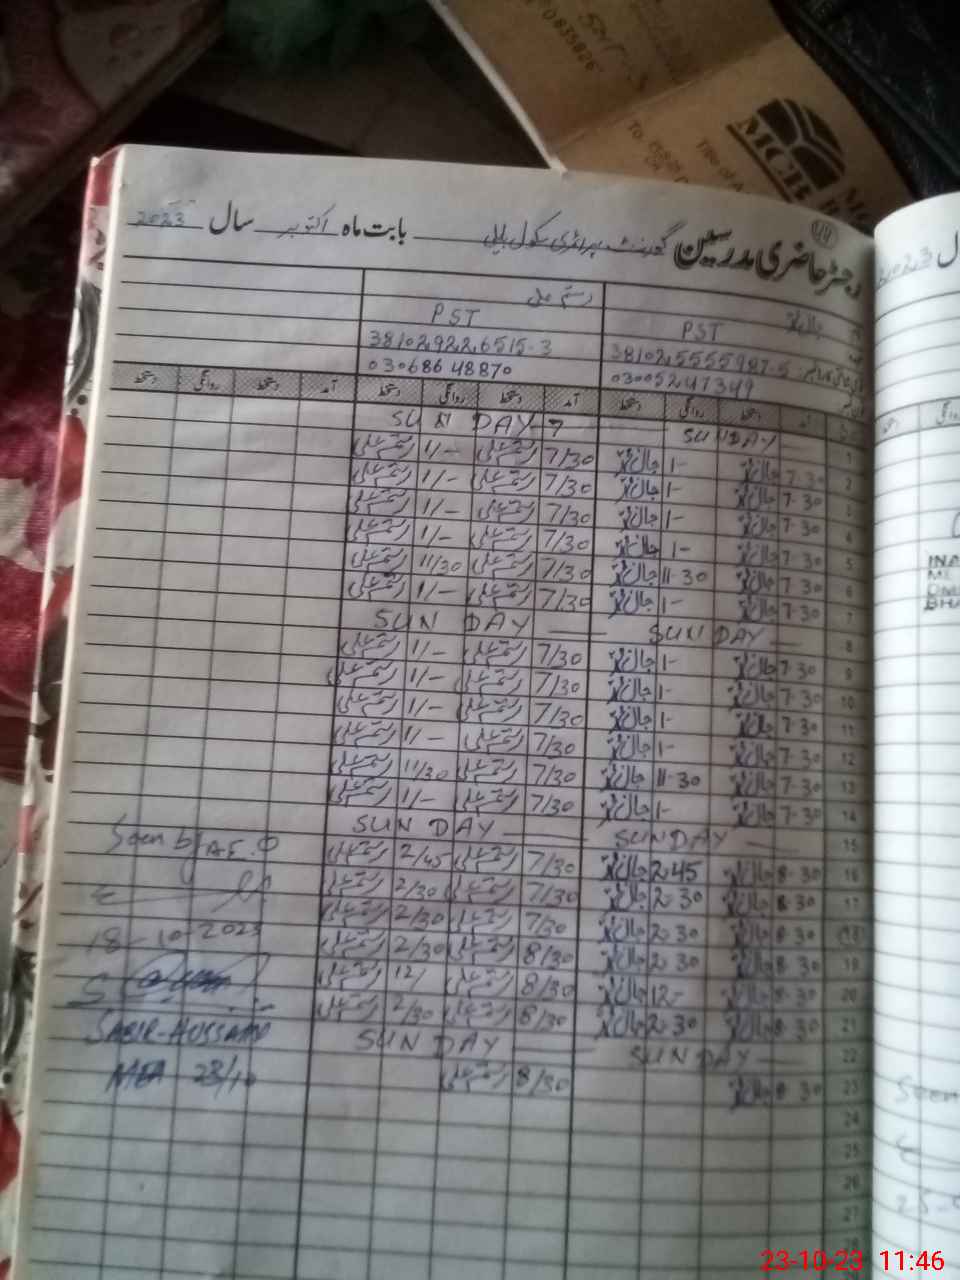 رجسٹر حاضری مدرسین گورنمنٹ پرائمری سکول بابت ماہ اکتوبر سال 2023
رستم علی
PST PST
38102-9226515-3 38102-5555987-5
03068648870 03005247349
آمد دستخط روانگی دستخط آمد دستخط روانگی دستخط
1 SUNDAY SUNDAY
2 7-30 1- 7/30 رستم علی 1/- رستم علی
3 7-30 1- 7/30 رستم علی 1/- رستم علی
4 7-30 1- 7/30 رستم علی 1/- رستم علی
5 7-30 1- 7/30 رستم علی 1/- رستم علی
6 7-30 11-30 7/30 رستم علی 11/30 رستم علی
7 7-30 1- 7/30 رستم علی 1/- رستم علی
8 SUNDAY SUNDAY
9 7-30 1- 7/30 رستم علی 1/- رستم علی
10 7-30 1- 7/30 رستم علی 1/- رستم علی
11 7-30 1- 7/30 رستم علی 1/- رستم علی
12 7-30 1- 7/30 رستم علی 1/- رستم علی
13 7-30 11-30 7/30 رستم علی 11/30 رستم علی
14 7-30 1- 7/30 رستم علی 1/- رستم علی
15 SUNDAY SUNDAY
16 8-30 2-45 7/30 رستم علی 2/45 رستم علی
17 8-30 2-30 7/30 رستم علی 2/30 رستم علی
18 8-30 2-30 7/30 رستم علی 2/30 رستم علی
19 8-30 2-30 8/30 رستم علی 2/30 رستم علی
20 8-30 12- 8/30 رستم علی 12/ رستم علی
21 8-30 2-30 8/30 رستم علی 2/30 رستم علی
22 SUNDAY SUNDAY
23 8-30 8/30 رستم علی
24
25
26
27
28
Seen by A.E.O
18-10-2023
SABIR HUSSAIN
MEA 23/10
MCB
Title of A
To,
2023
سال
روانگی
دستخط
Seen
25-
23-10-23 11:46